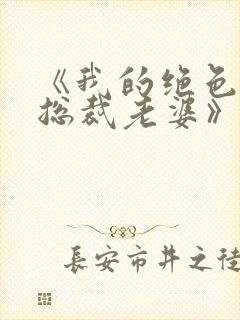 《我的绝色
总裁老婆》
長安市井之徒